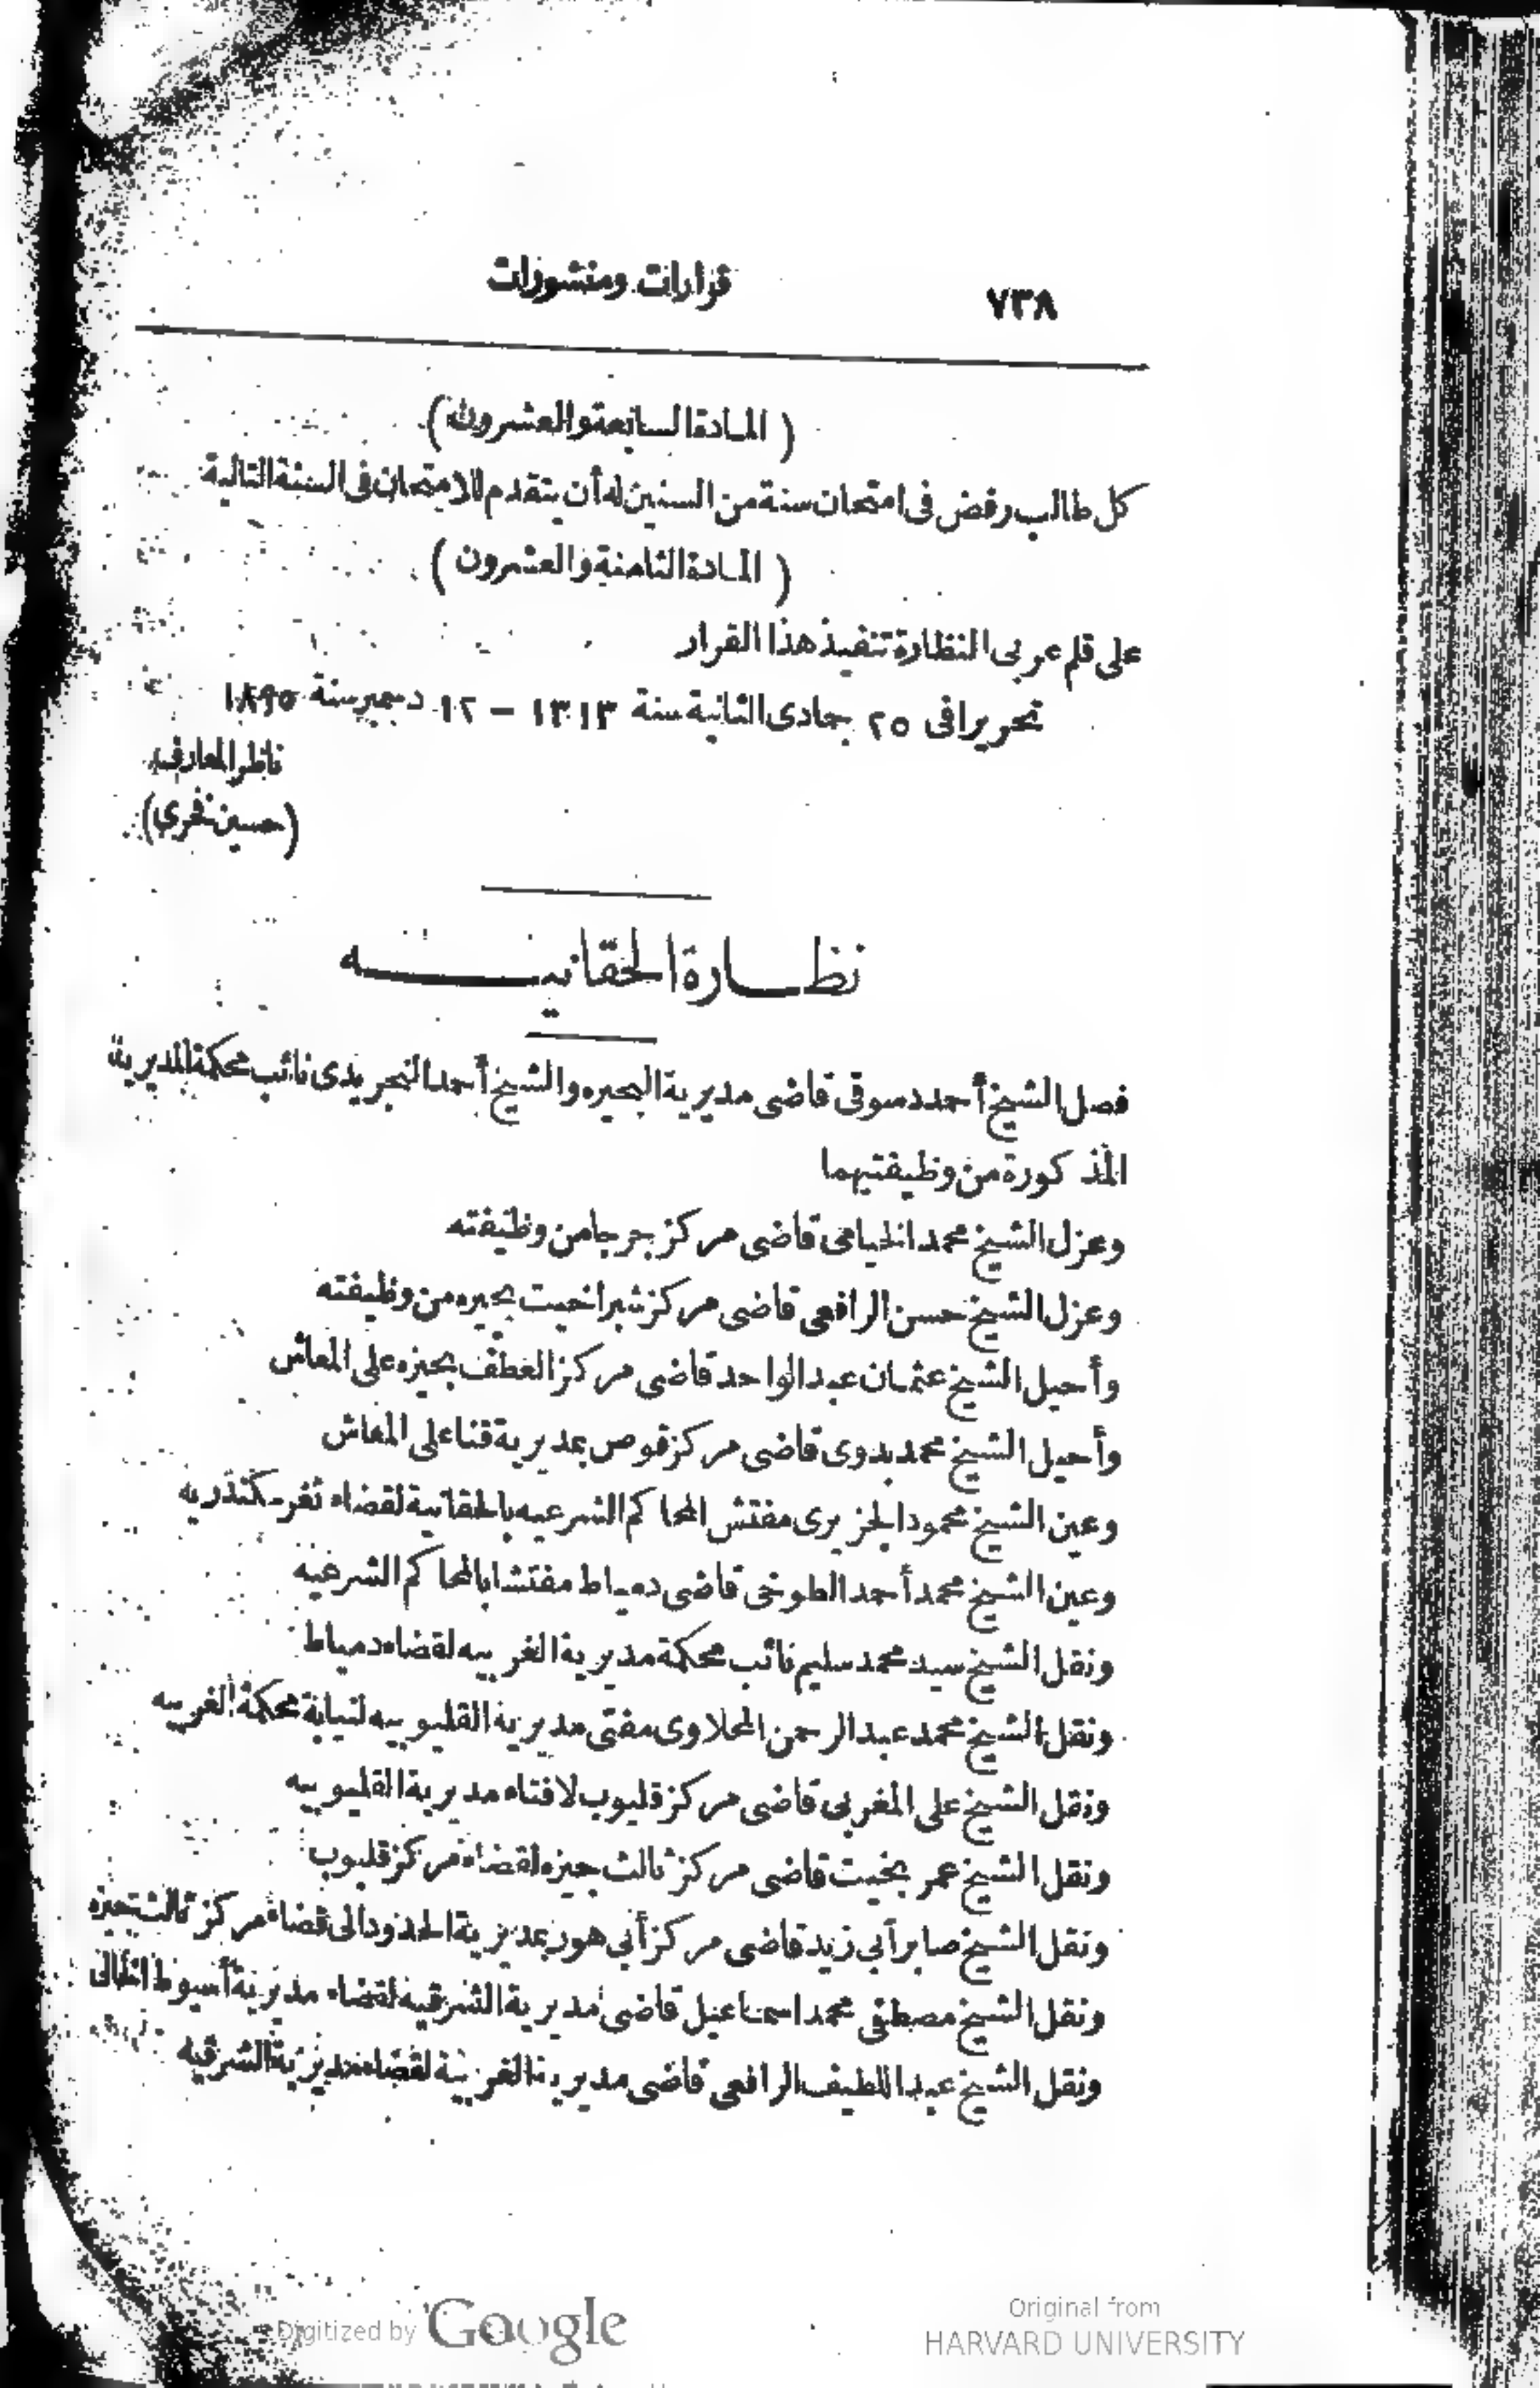 ٧٣٨
قرارات ومنشورات
( المادة السابعة والعشرون )
كل طالب رفض فى امتحان سنة من السنين له أن يتقدم للامتحان فى السنة التالية
( المادة الثامنة والعشرون )
على قلم عربى النظارة تنفيذ هذا القرار
تحريرا فى ٢٥ جمادى الثانية سنة ١٣١٣ – ١٢ دسمبر سنة ١٨٩٥
ناظر المعارف
(حسين فخري)
نظارة الحقانيه
فصل الشيخ أحمد دسوقى قاضى مديرية البحيره والشيخ أحمد التجريدى نائب محكمة المديرية
المذكورة من وظيفتيهما
وعزل الشيخ محمد الخيامى قاضى مركز جرجا من وظيفته
وعزل الشيخ حسن الرافعى قاضى مركز شبراخيت بحيره من وظيفته
وأحيل الشيخ عثمان عبد الواحد قاضى مركز العطف بحيره على المعاش
وأحيل الشيخ محمد بدوى قاضى مركز قوص بمديرية قنا على المعاش
وعين الشيخ محمود الجزيرى مفتش المحاكم الشرعيه بالحقانية لقضاء ثغر سكندريه
وعين الشيخ محمد أحمد الطوخى قاضى دمياط مفتشا بالمحاكم الشرعيه
ونقل الشيخ سيد محمد سليم نائب محكمة مديرية الغربيه لقضاء دمياط
ونقل الشيخ محمد عبد الرحمن المحلاوى مفتى مديرية القليوبيه لنيابة محكمة الغربيه
ونقل الشيخ على المغربى قاضى مركز قليوب لافتاء مديرية القليوبيه
ونقل الشيخ عمر بخيت قاضى مركز ثالث جيزه لقضاء مركز قليوب
ونقل الشيخ صابر أبى زيد قاضى مركز أبى هور بمديرية الحدود الى قضاء مركز ثالث جيزه
ونقل الشيخ مصطفى محمد اسماعيل قاضى مديرية الشرقيه لقضاء مديرية أسيوط الخالى
ونقل الشيخ عبد اللطيف الرافعى قاضى مديرية الغربية لقضاء مديرية الشرقيه
Digitized by Google
Original from
HARVARD UNIVERSITY